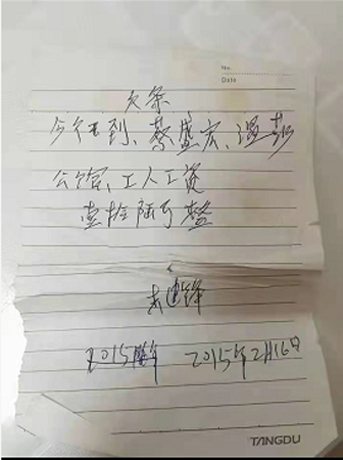 No.
Date
欠条
今欠到、蔡盛宏、温莎
公馆、工人工资
壹拾陆万整
建锋
2015 2015年2月16日
TANGDU